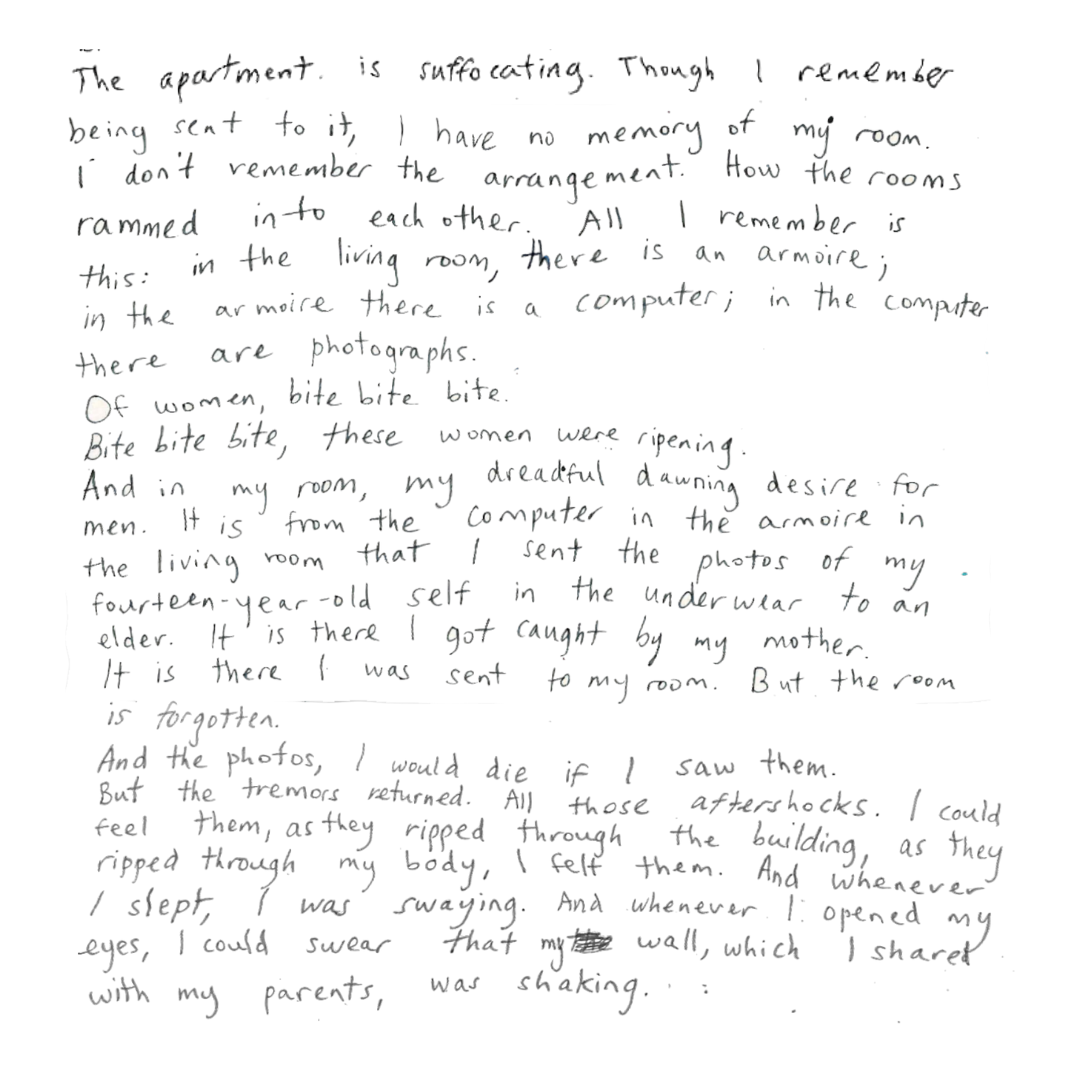 The apartment. is suffocating. Though I remember
being sent to it, I have no memory of my room.
I don't remember the arrangement. How the rooms
rammed into each other. All I remember is
this: in the living room, there is an armoire;
in the armoire there is a computer; in the computer
there are photographs.
Of women, bite bite bite.
Bite bite bite, these women were ripening.
And in my room, my dreadful dawning desire for
men. It is from the computer in the armoire in
the living room that I sent the photos of my
fourteen-year-old self in the underwear to an
elder. It is there I got caught by my mother.
It is there I was sent to my room. But the room
is forgotten.
And the photos, I would die if I saw them.
But the tremors returned. All those aftershocks. I could
feel them, as they ripped through the building, as they
ripped through my body, I felt them. And whenever
I slept, I was swaying. And whenever I opened my
eyes, I could swear that my wall, which I shared
with my parents, was shaking.